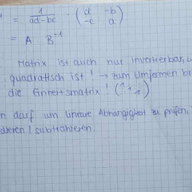 = 1/(ad-bc) · (d -b / -c a)
= A B⁻¹
Matrix ist auch nur invertierbar,
quadratisch ist! → zum Umformen
die Einheitsmatrix! (1 1)
darf um lineare Abhängigkeit zu prüfen
subtrahieren